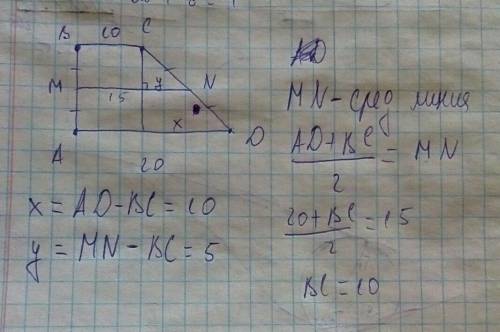 B 10 C
M 15 y N
x
A D
20
x = AD - BC = 10
y = MN - BC = 5
MN - сред линия
AD + BC
/ 2 = MN
20 + BC
/ 2 = 15
BC = 10